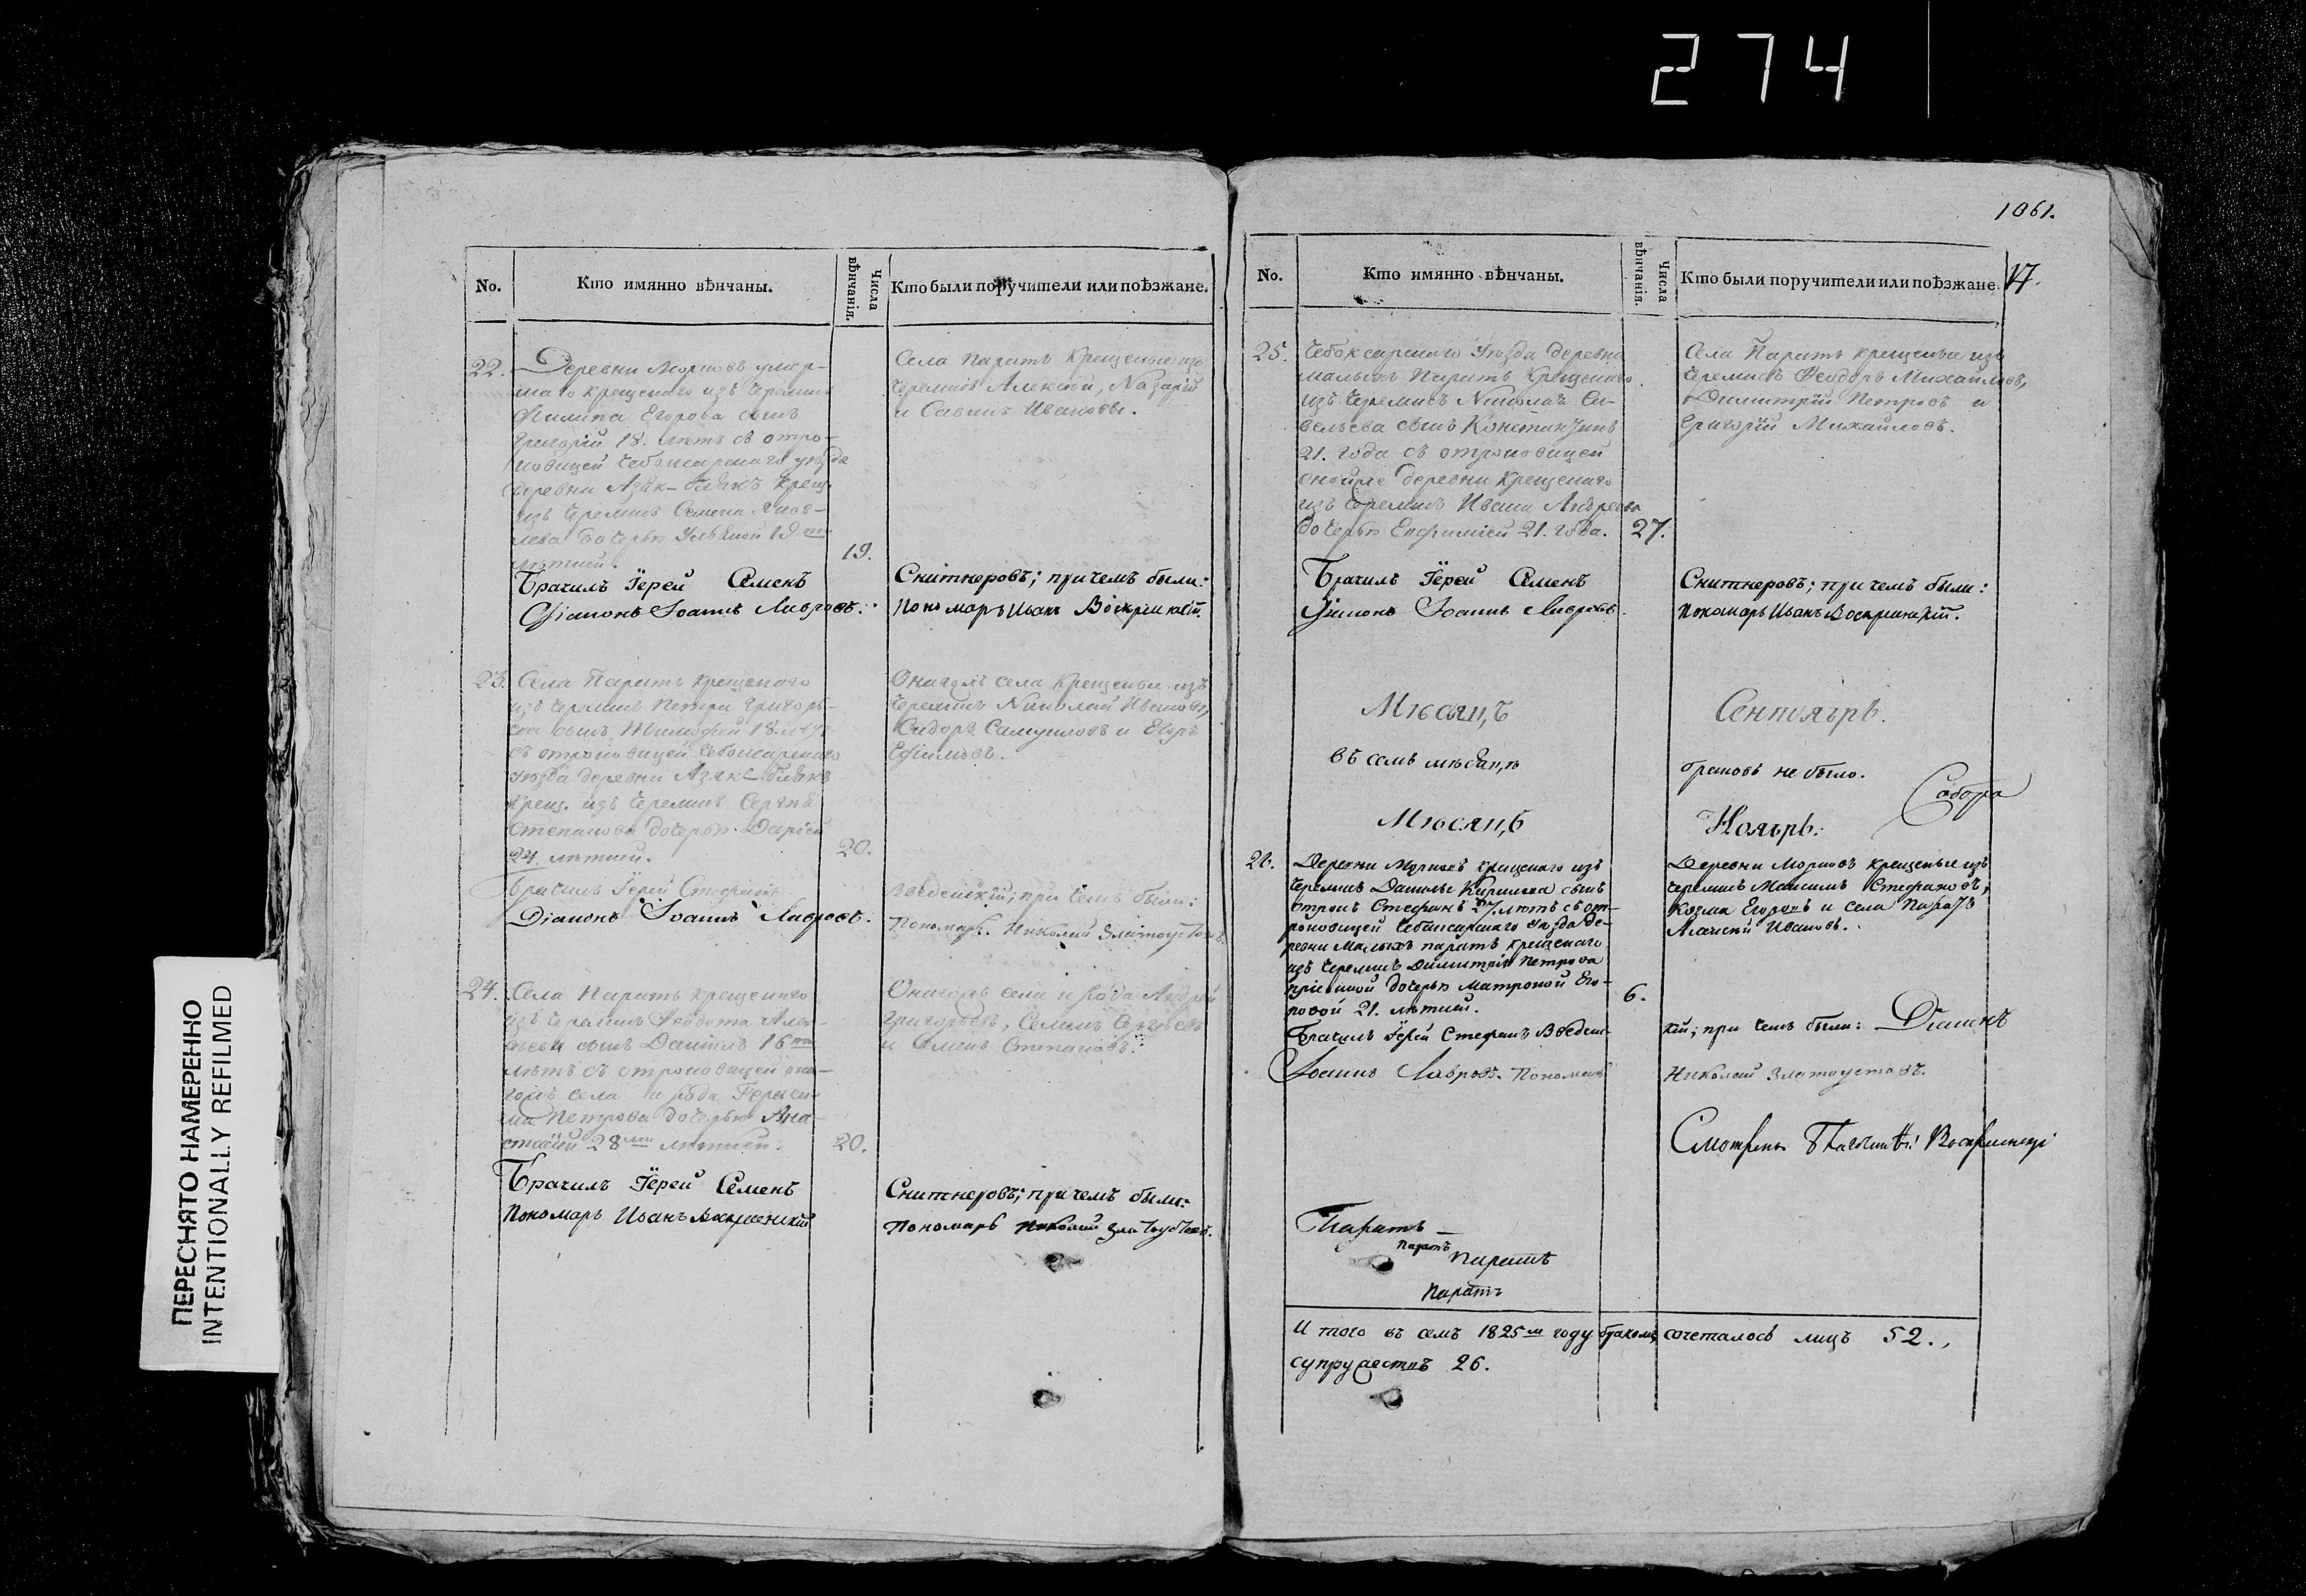 274
1061.
No.
Кто имянно вѣнчаны.
Числа вѣнчанія.
Кто были поручители или поѣзжане.
22.
Деревни Морковъ умер-
шаго крещенаго изъ черемисъ
Филипа Егорова сынъ
Григорій 18. лѣтъ съ отро-
ковицей Чебоксарскаго уѣзда
деревни Азяк- крещ.
изъ черемисъ Семена Яков-
лева дочерью Ульяной 19
лѣтней.
19.
Села Паратъ крещеные изъ
черемисъ Алексѣй, Назарій
и Савинъ Ивановы.
Брачилъ Іерей Семенъ
Снитнеровъ; при чемъ были:
Діаконъ Іоаннъ Лавровъ.
Пономарь Иванъ Воскресенскій.
23.
Села Паратъ крещенаго
изъ черемисъ Петра Григорь-
ева сынъ Тимофей 18. лѣтъ
съ отроковицей Чебоксарскаго
уѣзда деревни Азяк-
крещ. изъ черемисъ Сергѣя
Степанова дочерью Даріей
24. лѣтней.
20.
Онагожъ села крещеные изъ
черемисъ Николай Ивановъ,
Сидоръ Самуиловъ и Егоръ
Ефимовъ.
Брачилъ Іерей Стефанъ
Введенскій; при чемъ были:
Діаконъ Іоаннъ Лавровъ.
Пономарь Николай Златоустовъ.
24.
Села Паратъ крещенаго
изъ черемисъ Ѳедота Алек-
сѣева сынъ Даніилъ 16
лѣтъ съ отроковицей она-
гожъ села и рода Гераси-
ма Петрова дочерью Ана-
стасіей 28 лѣтней.
20.
Онагожъ села и рода Андрей
Григорьевъ, Семенъ Сергѣевъ
и Семенъ Степановъ.
Брачилъ Іерей Семенъ
Снитнеровъ; при чемъ были:
Пономарь Иванъ Воскресенскій
Пономарь Николай Златоустовъ.
No.
Кто имянно вѣнчаны.
Числа вѣнчанія.
Кто были поручители или поѣзжане.
17.
25.
Чебоксарскаго Уѣзда деревни
малыхъ Паратъ крещенаго
изъ черемисъ Николая Са-
вельева сынъ Константинъ
21. года съ отроковицей
онойже деревни крещенаго
изъ черемисъ Ивана Андреева
дочерью Евфиміей 21. года.
27.
Села Паратъ крещеные изъ
черемисъ Ѳеодоръ Михайловъ,
Димитрій Петровъ и
Григорій Михайловъ.
Брачилъ Іерей Семенъ
Снитнеровъ; при чемъ были:
Діаконъ Іоаннъ Лавровъ.
Пономарь Иванъ Воскресенскій.
Мѣсяцъ
Сентябрь.
въ семъ мѣсяцѣ
браковъ не было.
Собора
Мѣсяцъ
Ноябрь:
26.
Деревни Морковъ крещенаго изъ
черемисъ Данилы Кирилова сынъ
отрокъ Стефанъ 27. лѣтъ съ от-
роковицей Чебоксарскаго Уѣзда де-
ревни Малыхъ паратъ крещенаго
изъ черемисъ Димитрія Петрова
пріемной дочерью Матроной Его-
ровой 21. лѣтней.
6.
Деревни Морковъ крещеные изъ
черемисъ Максимъ Стефановъ,
Козма Егоровъ и села Паратъ
Алексѣй Ивановъ.
Брачилъ Іерей Стефанъ Введенс-
кій; при чемъ были: Діаконъ
Іоаннъ Лавровъ. Пономарь
Николай Златоустовъ.
Паратъ
Паратъ
Паратъ
Паратъ
Итого въ семъ 1825 году бракомъ сочеталось лицъ 52.,
супружествъ 26.
ПЕРЕСНЯТО НАМЕРЕННО
INTENTIONALLY REFILMED